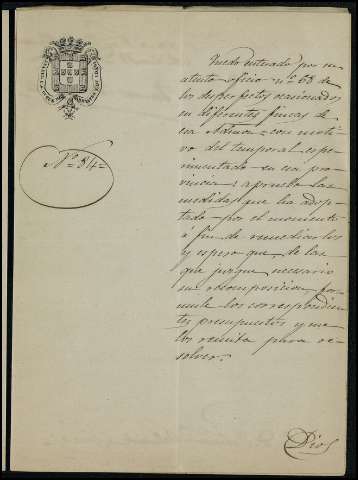 Nº 514
Quedo enterado por su
atento oficio nº 68 de
los desperfectos ocasionados
en diferentes fincas de
esa Naturaleza con moti-
vo del temporal expe-
rimentado en esa pro-
vincia; apruebo las
medidas que ha adop-
tado por el momento
á fin de remediarlos
y espero que de las
que juzgue necesario
su recomposicion for-
mule los correspondien-
tes presupuestos y me
los remita para re-
solver.
Dios